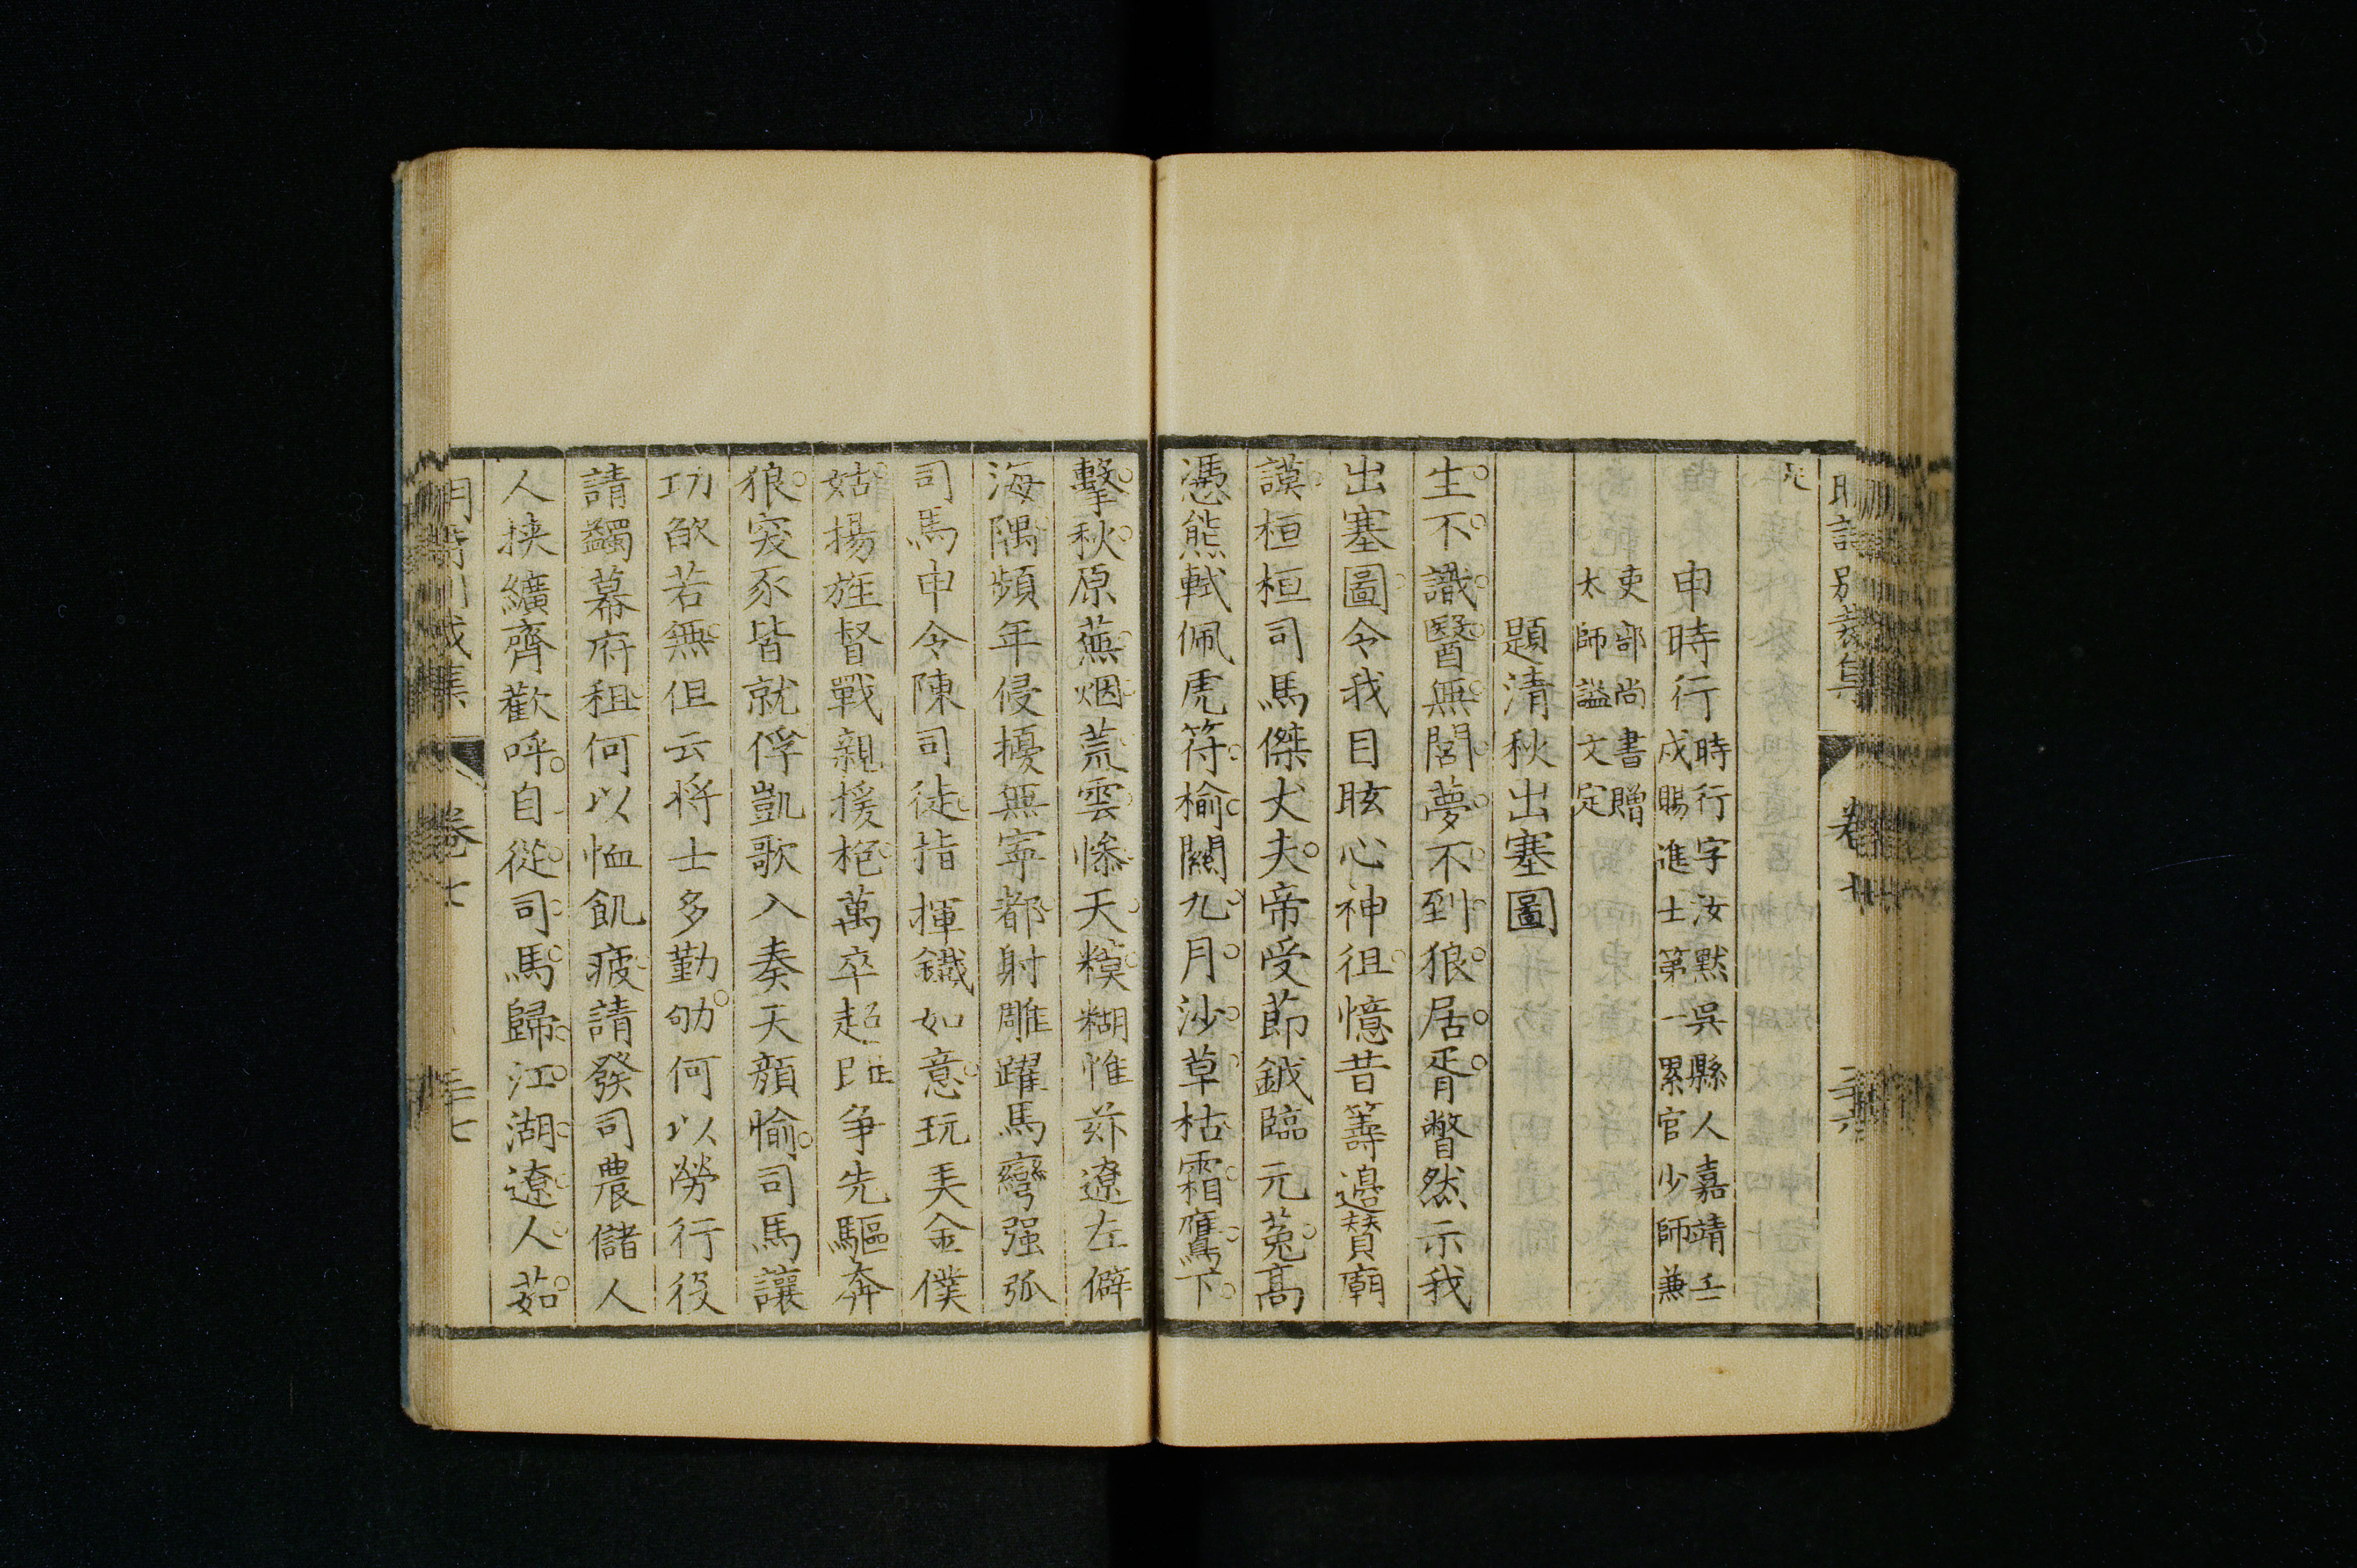 申時行時行字汝默吳縣人嘉靖壬
戍賜進士第一累官少師兼
吏部尚書贈
太師謚文定
題清秋出塞圖
生不識醫無閭夢不到狼居胥瞥然示我
出塞圖令我目眩心神徂憶昔籌邊贊廟
謨桓桓司馬傑犬夫帝受節鉞臨元菟高
憑熊軾佩虎符榆關九月沙草枯霜鷹下
擊秋原蕪烟荒雲慘天糢糊惟玆遼左僻
海隅頻年侵擾無寧都射雕躍馬彎强弧
司馬申令陳司徒指揮鐵如意玩美金僕
姑揚旌督戰親援枹萬卒超距争先驅奔
狼突豕皆就俘凱歌入奏天顏愉司馬讓
功飲若無但云将士多勤劬何以勞行役
請蠲幕府租何以恤飢疲請發司農儲人
人挟纊齊歡呼自從司馬歸江湖遼人茹
卷七